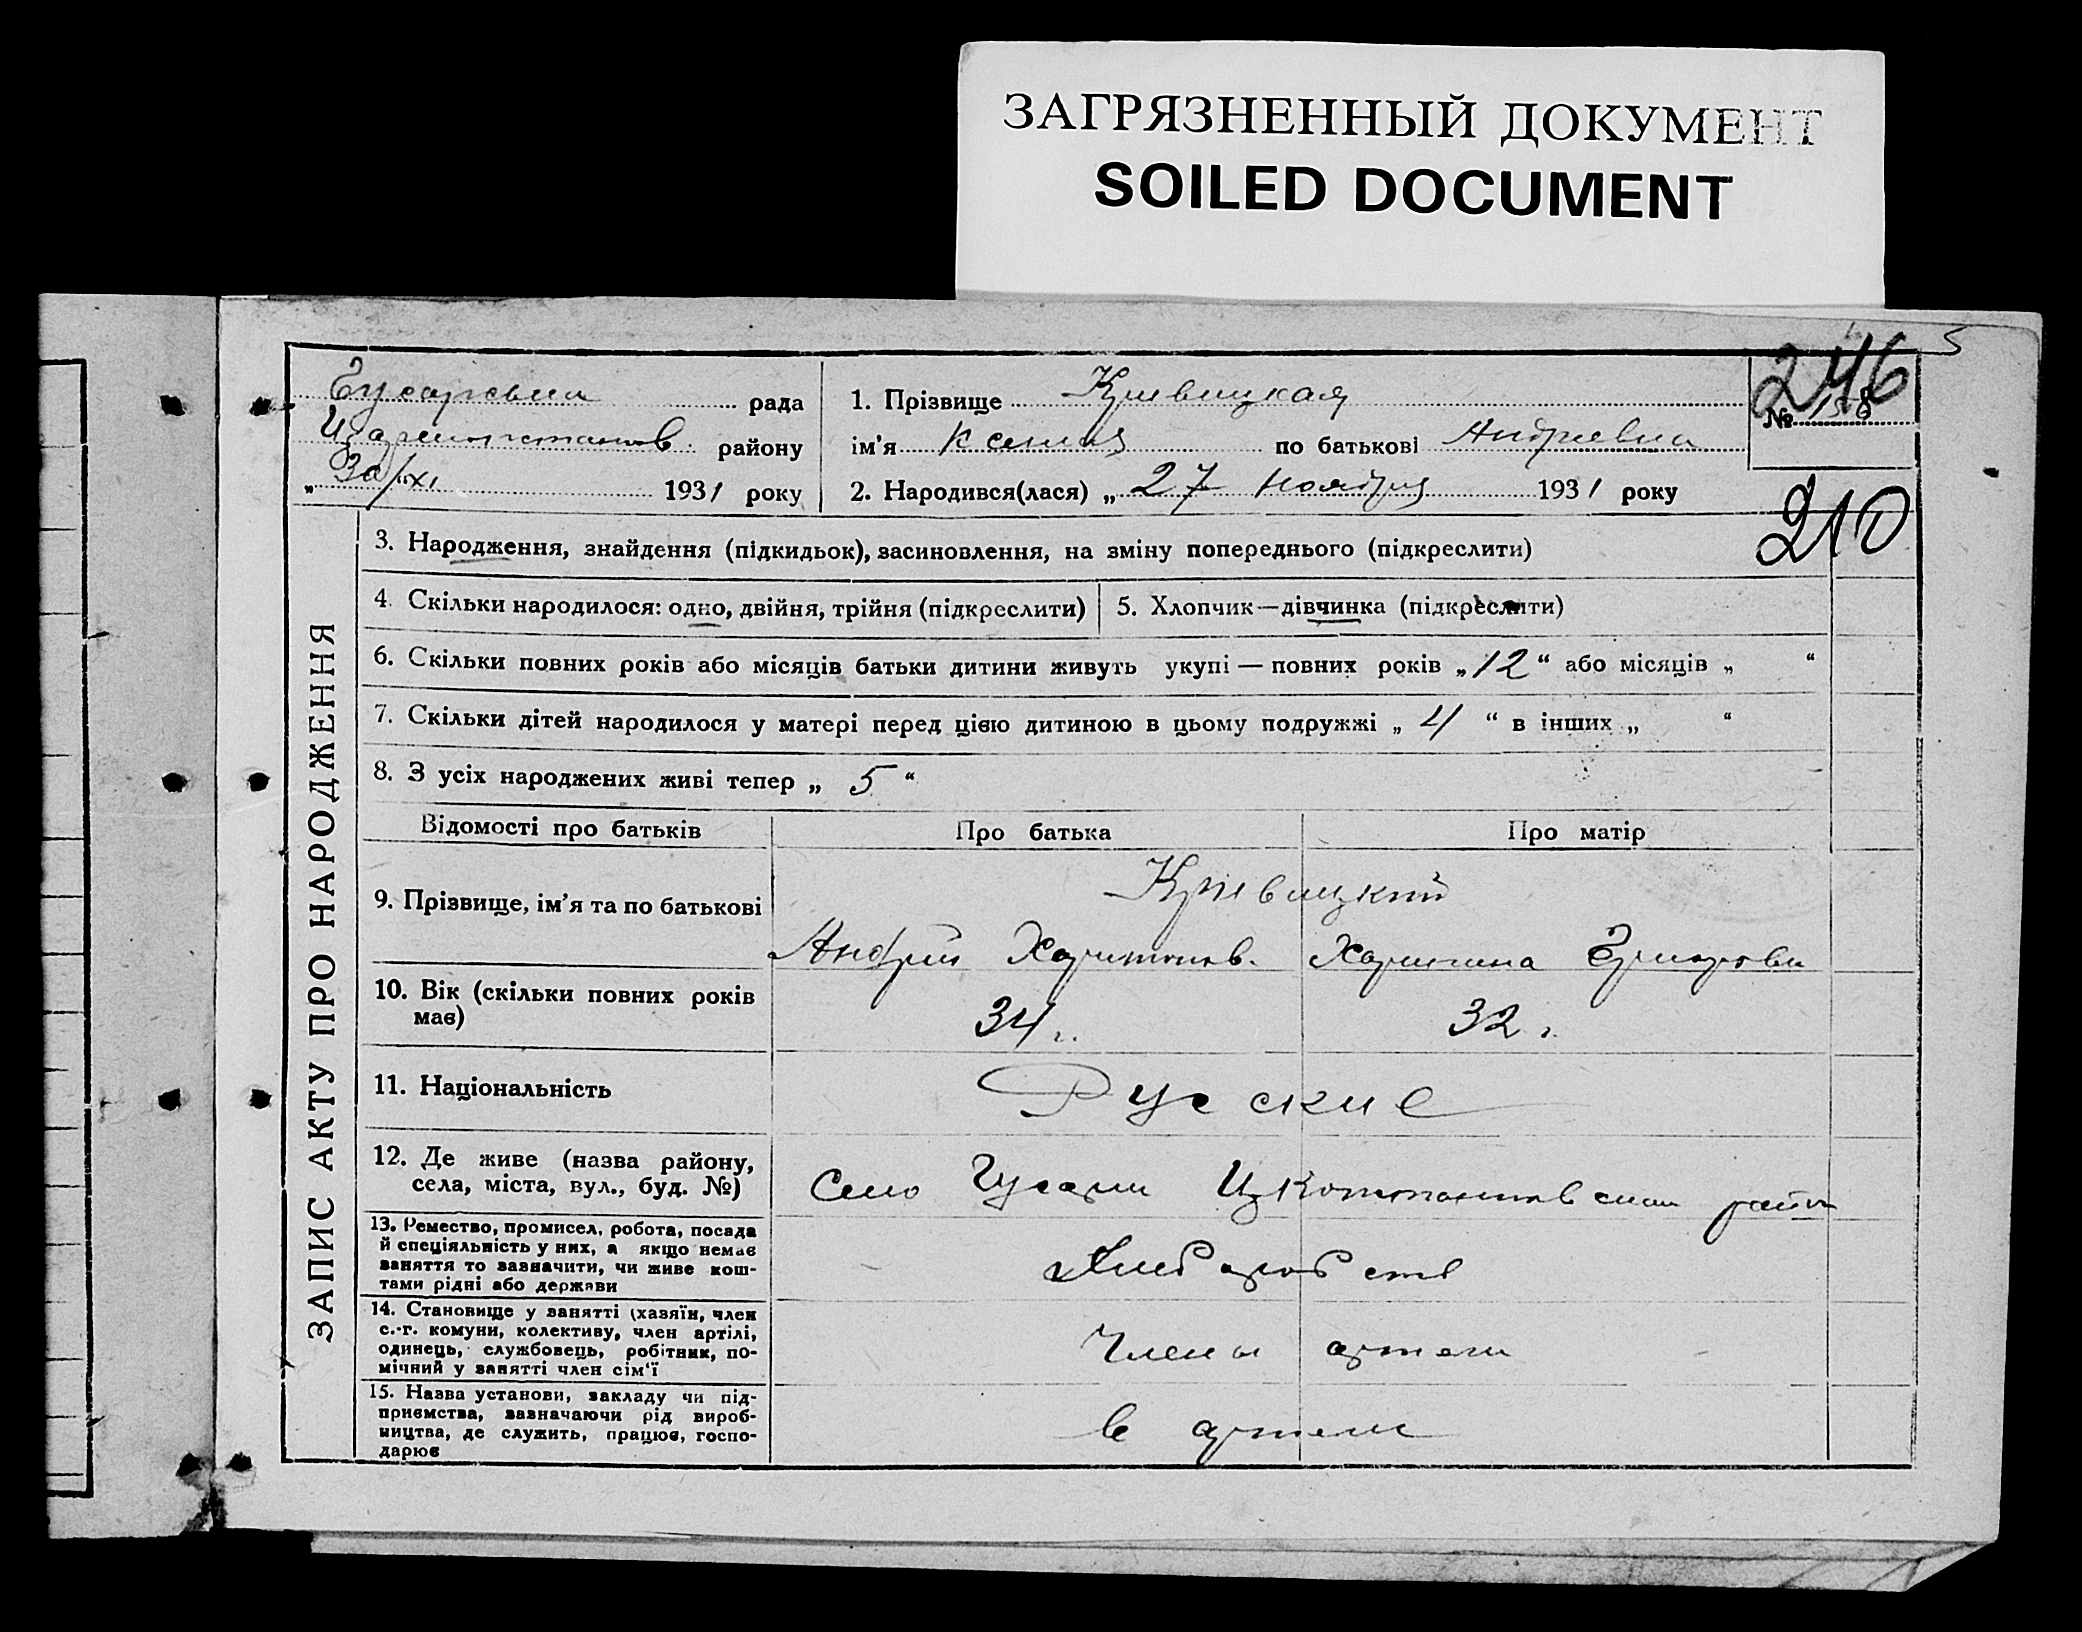 ЗАГРЯЗНЕННЫЙ ДОКУМЕНТ
SOILED DOCUMENT
5
246
рада
району
„ 30/XI 1931 року
1. Прізвище Кривицкая
ім'я Ксения по батькові Андреевна
2. Народився(лася) „ 27 ноября 1931 року
№ 158
210
ЗАПИС АКТУ ПРО НАРОДЖЕННЯ
3. Народження, знайдення (підкидьок), засиновлення, на зміну попереднього (підкреслити)
4. Скільки народилося: одно, двійня, трійня (підкреслити)
5. Хлопчик—дівчинка (підкреслити)
6. Скільки повних років або місяців батьки дитини живуть укупі — повних років „12“ або місяців „ “
7. Скільки дітей народилося у матері перед цією дитиною в цьому подружжі „ 4 “ в інших „ “
8. З усіх народжених живі тепер „ 5 “
Відомості про батьків
Про батька
Про матір
9. Прізвище, ім'я та по батькові
Кривицкий
Андрей Харитонов.
10. Вік (скільки повних років
має)
34 г.
32 г.
11. Національність
Руские
12. Де живе (назва району,
села, міста, вул., буд. №)
Село
13. Ремество, промисел, робота, посада
й спеціяльність у них, а якщо немає
заняття то зазначити, чи живе кош-
тами рідні або держави
14. Становище у занятті (хазяїн, член
с.-г. комуни, колективу, член артілі,
одинець, службовець, робітник, по-
мічний у занятті член сім'ї
Члены артели
15. Назва установи, закладу чи під-
приємства, зазначаючи рід вироб-
ництва, де служить, працює, госпо-
дарює
в артели